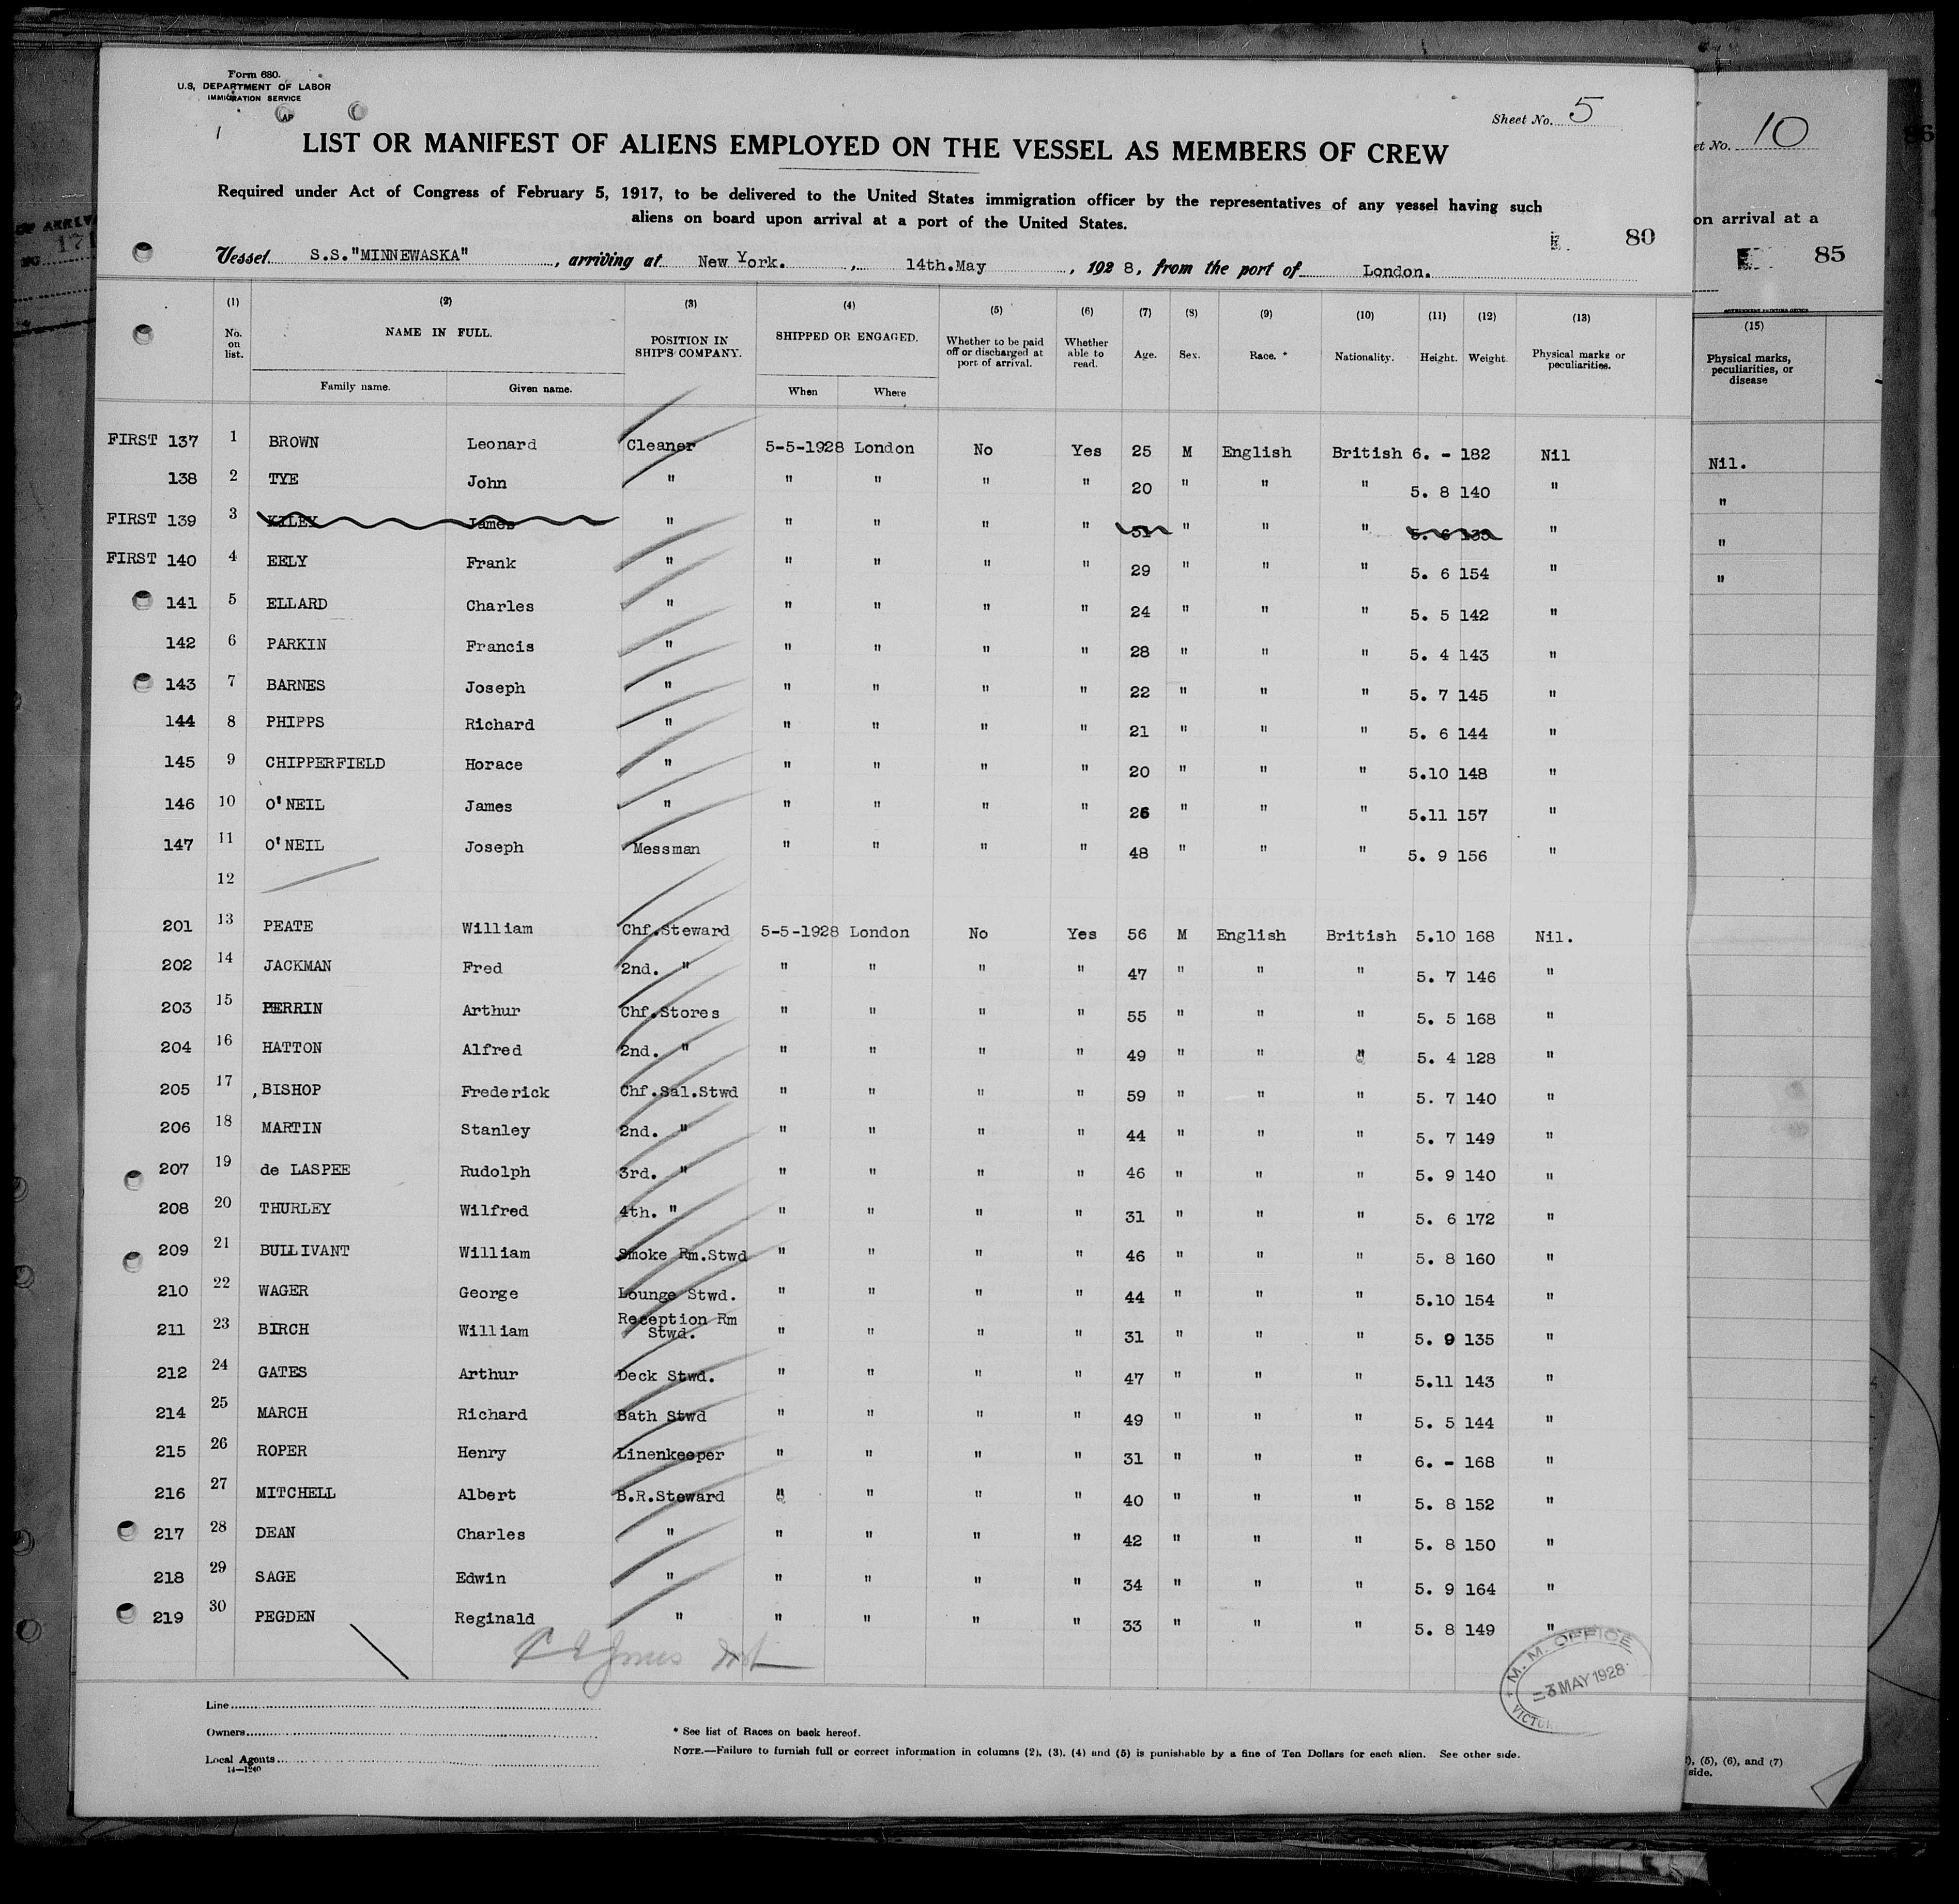 Form 680.
U.S. DEPARTMENT OF LABOR
IMMIGRATION SERVICE
AP
Sheet No. 5
LIST OR MANIFEST OF ALIENS EMPLOYED ON THE VESSEL AS MEMBERS OF CREW
Required under Act of Congress of February 5, 1917, to be delivered to the United States immigration officer by the representatives of any vessel having such
aliens on board upon arrival at a port of the United States.
80
Vessel S.S."MINNEWASKA", arriving at New York., 14th.May, 1928, from the port of London.
(1) (2) (3) (4) (5) (6) (7) (8) (9) (10) (11) (12) (13)
No. on list. NAME IN FULL. Family name. Given name. POSITION IN SHIP'S COMPANY. SHIPPED OR ENGAGED. When Where Whether to be paid off or discharged at port of arrival. Whether able to read. Age. Sex. Race. * Nationality. Height. Weight. Physical marks or peculiarities.
FIRST 137 1 BROWN Leonard Cleaner 5-5-1928 London No Yes 25 M English British 6. - 182 Nil
138 2 TYE John " " " " " 20 " " " 5. 8 140 "
FIRST 139 3 KILEY James " " " " " 31 " " " 5. 6 "
FIRST 140 4 EELY Frank " " " " " 29 " " " 5. 6 154 "
141 5 ELLARD Charles " " " " " 24 " " " 5. 5 142 "
142 6 PARKIN Francis " " " " " 28 " " " 5. 4 143 "
143 7 BARNES Joseph " " " " " 22 " " " 5. 7 145 "
144 8 PHIPPS Richard " " " " " 21 " " " 5. 6 144 "
145 9 CHIPPERFIELD Horace " " " " " 20 " " " 5.10 148 "
146 10 O'NEIL James " " " " " 26 " " " 5.11 157 "
147 11 O'NEIL Joseph Messman " " " " 48 " " " 5. 9 156 "
12
201 13 PEATE William Chf.Steward 5-5-1928 London No Yes 56 M English British 5.10 168 Nil.
202 14 JACKMAN Fred 2nd. " " " " " 47 " " " 5. 7 146 "
203 15 PERRIN Arthur Chf.Stores " " " " 55 " " " 5. 5 168 "
204 16 HATTON Alfred 2nd. " " " " " 49 " " " 5. 4 128 "
205 17 BISHOP Frederick Chf.Sal.Stwd " " " " 59 " " " 5. 7 140 "
206 18 MARTIN Stanley 2nd. " " " " " 44 " " " 5. 7 149 "
207 19 de LASPEE Rudolph 3rd. " " " " " 46 " " " 5. 9 140 "
208 20 THURLEY Wilfred 4th. " " " " " 31 " " " 5. 6 172 "
209 21 BULLIVANT William Smoke Rm.Stwd " " " " 46 " " " 5. 8 160 "
210 22 WAGER George Lounge Stwd. " " " " 44 " " " 5.10 154 "
211 23 BIRCH William Reception Rm Stwd. " " " " 31 " " " 5. 9 135 "
212 24 GATES Arthur Deck Stwd. " " " " 47 " " " 5.11 143 "
214 25 MARCH Richard Bath Stwd " " " " 49 " " " 5. 5 144 "
215 26 ROPER Henry Linenkeeper " " " " 31 " " " 6. - 168 "
216 27 MITCHELL Albert B.R.Steward " " " " 40 " " " 5. 8 152 "
217 28 DEAN Charles " " " " " 42 " " " 5. 8 150 "
218 29 SAGE Edwin " " " " " 34 " " " 5. 9 164 "
219 30 PEGDEN Reginald " " " " " 33 " " " 5. 8 149 "
M. M. OFFICE
3 MAY 1928
Line
Owners
Local Agents
14-1240
* See list of Races on back hereof.
NOTE.—Failure to furnish full or correct information in columns (2), (3), (4) and (5) is punishable by a fine of Ten Dollars for each alien. See other side.
et No. 10
on arrival at a
85
(15)
Physical marks,
peculiarities, or
disease
Nil.
"
"
"
(5), (6), and (7)
side.
86